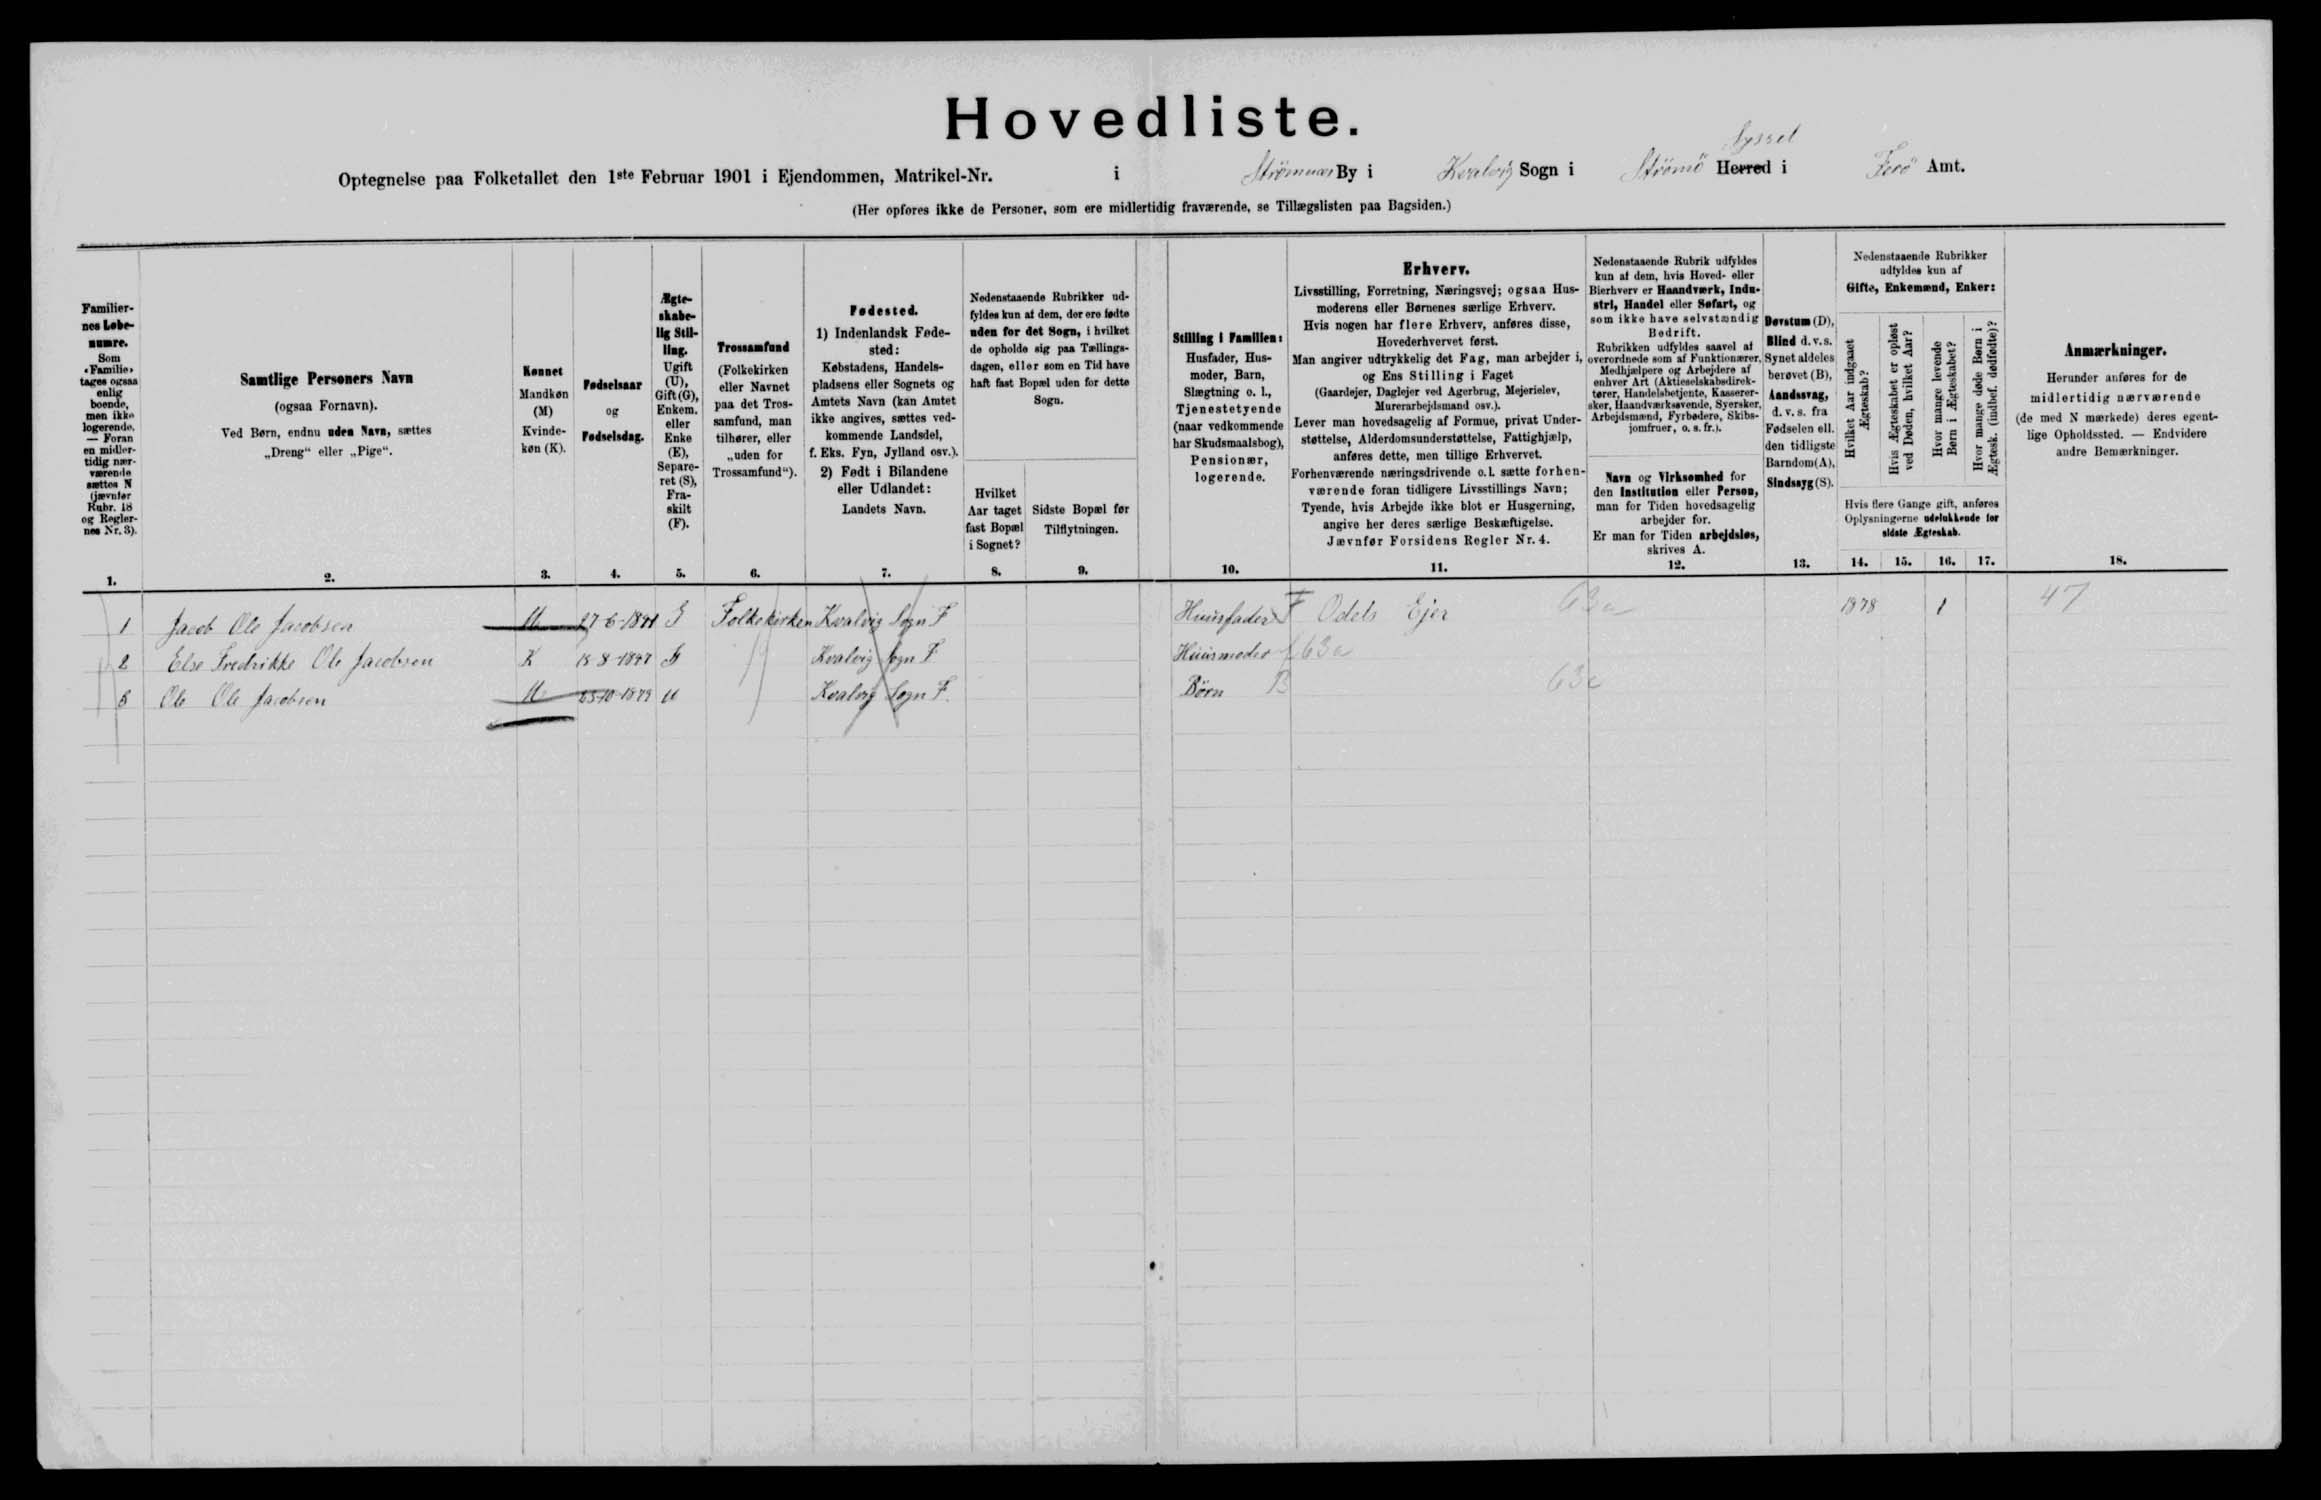 Hovedliste.
Optegnelse paa Folketallet den 1ste Februar 1901 i Ejendommen, Matrikel-Nr. i Strömnæs By i Kvalvig Sogn i Strömö Herred i Syssel Ferö Amt.
(Her opføres ikke de Personer, som ere midlertidig fraværende, se Tillægslisten paa Bagsiden.)
Familiernes Løbenumre.
Som «Familie» tages ogsaa enlig boende, men ikke logerende. — Foran en midlertidig nærværende sættes N (jævnfør Rubr. 18 og Reglernes Nr. 3).
1.
Samtlige Personers Navn
(ogsaa Fornavn).
Ved Børn, endnu uden Navn, sættes
„Dreng“ eller „Pige“.
2.
Kønnet
Mandkøn
(M)
Kvinde-
køn (K).
3.
Fødselsaar
og
Fødselsdag.
4.
Ægte-
skabe-
lig Stil-
ling.
Ugift
(U),
Gift (G),
Enkem.
eller
Enke
(E),
Separe-
ret (S),
Fra-
skilt
(F).
5.
Trossamfund
(Folkekirken
eller Navnet
paa det Tros-
samfund, man
tilhører, eller
„uden for
Trossamfund“).
6.
Fødested.
1) Indenlandsk Føde-
sted:
Købstadens, Handels-
pladsens eller Sognets og
Amtets Navn (kan Amtet
ikke angives, sættes ved-
kommende Landsdel,
f. Eks. Fyn, Jylland osv.).
2) Født i Bilandene
eller Udlandet:
Landets Navn.
7.
Nedenstaaende Rubrikker ud-
fyldes kun af dem, der ere fødte
uden for det Sogn, i hvilket
de opholde sig paa Tællings-
dagen, eller som en Tid have
haft fast Bopæl uden for dette
Sogn.
Hvilket
Aar taget
fast Bopæl
i Sognet?
8.
Sidste Bopæl før
Tilflytningen.
9.
Stilling i Familien:
Husfader, Hus-
moder, Barn,
Slægtning o. l.,
Tjenestetyende
(naar vedkommende
har Skudsmaalsbog),
Pensionær,
logerende.
10.
Erhverv.
Livsstilling, Forretning, Næringsvej; ogsaa Hus-
moderens eller Børnenes særlige Erhverv.
Hvis nogen har flere Erhverv, anføres disse,
Hovederhvervet først.
Man angiver udtrykkelig det Fag, man arbejder i,
og Ens Stilling i Faget
(Gaardejer, Daglejer ved Agerbrug, Mejerielev,
Murerarbejdsmand osv.).
Lever man hovedsagelig af Formue, privat Under-
støttelse, Alderdomsunderstøttelse, Fattighjælp,
anføres dette, men tillige Erhvervet.
Forhenværende næringsdrivende o. l. sætte forhen-
værende foran tidligere Livsstillings Navn;
Tyende, hvis Arbejde ikke blot er Husgerning,
angive her deres særlige Beskæftigelse.
Jævnfør Forsidens Regler Nr. 4.
11.
Nedenstaaende Rubrik udfyldes
kun af dem, hvis Hoved- eller
Bierhverv er Haandværk, Indu-
stri, Handel eller Søfart, og
som ikke have selvstændig
Bedrift.
Rubrikken udfyldes saavel af
overordnede som af Funktionærer,
Medhjælpere og Arbejdere af
enhver Art (Aktieselskabsdirek-
tører, Handelsbetjente, Kasserer-
sker, Haandværkssvende, Syersker,
Arbejdsmænd, Fyrbødere, Skibs-
jomfruer, o. s. fr.).
Navn og Virksomhed for
den Institution eller Person,
man for Tiden hovedsagelig
arbejder for.
Er man for Tiden arbejdsløs,
skrives A.
12.
Døvstum (D),
Blind d. v. s.
Synet aldeles
berøvet (B),
Aandssvag,
d. v. s. fra
Fødselen ell.
den tidligste
Barndom (A),
Sindssyg (S).
13.
Nedenstaaende Rubrikker
udfyldes kun af
Gifte, Enkemænd, Enker:
Hvilket Aar indgaaet
Ægteskab?
Hvis Ægteskabet er opløst
ved Døden, hvilket Aar?
Hvor mange levende
Børn i Ægteskabet?
Hvor mange døde Børn i
Ægtesk. (indbef. dødfødte)?
Hvis flere Gange gift, anføres
Oplysningerne udelukkende for
sidste Ægteskab.
14. 15. 16. 17.
Anmærkninger.
Herunder anføres for de
midlertidig nærværende
(de med N mærkede) deres egent-
lige Opholdssted. — Endvidere
andre Bemærkninger.
18.
1 Jacob Ole Jacobsen M 27-6-1841 G Folkekirken Kvalvig Sogn F Huusfader F Odels Ejer 63a 1878 1 47
2 Else Fredrikke Ole Jacobsen K 18-8-1847 G Kvalvig Sogn F Huusmoder f 63a
3 Ole Ole Jacobsen M -10-1879 U Kvalvig Sogn F. Börn B 63c